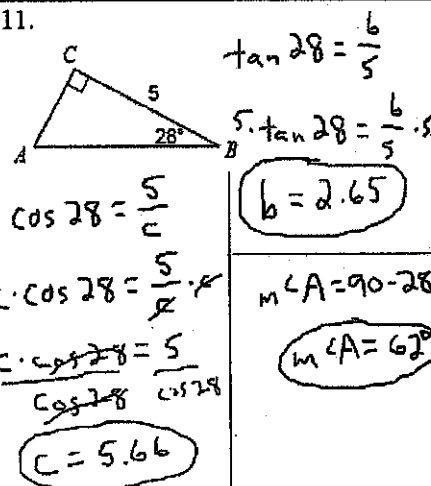 11.
C
5
28°
A
B
tan 28 = b/5
5 · tan 28 = b/5 · 5
b = 2.65
cos 28 = 5/c
c · cos 28 = 5/c · c
c · cos 28 / cos 28 = 5 / cos 28
c = 5.66
m∠A = 90 - 28
m∠A = 62°